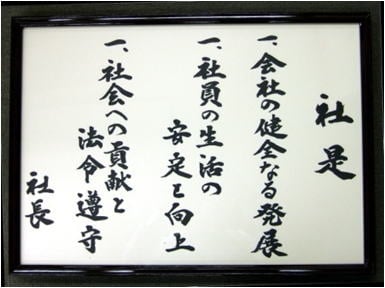 社是
一、会社の健全なる発展
一、社員の生活の
安定と向上
一、社会への貢献と
法令遵守
社長